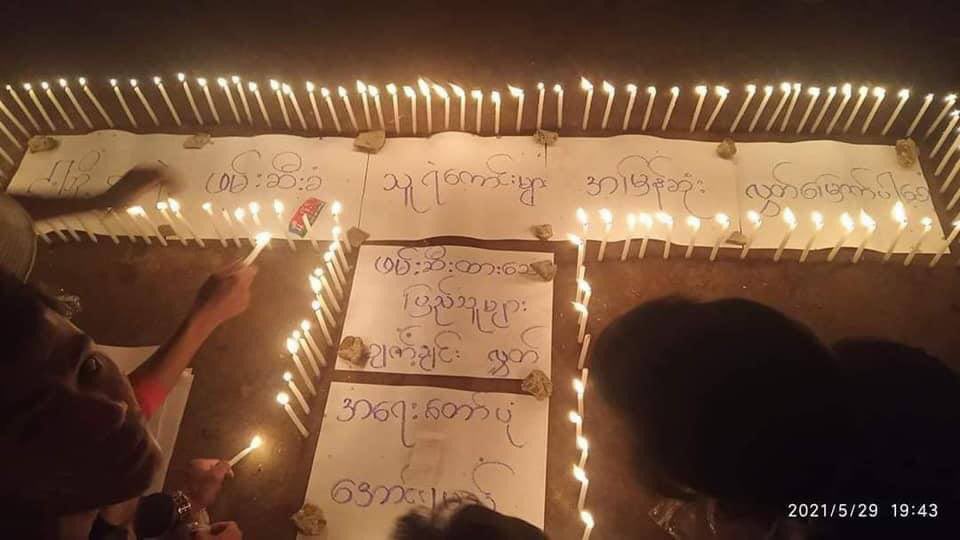 ဖမ်းဆီးခံ သူရဲကောင်းများ အမြန်ဆုံး လွတ်မြောက်ပါစေ
ဖမ်းဆီးထားသော
ပြည်သူများ
ချက်ချင်း လွှတ်
အရေးတော်ပုံ
အောင်ရမည်
2021/5/29 19:43